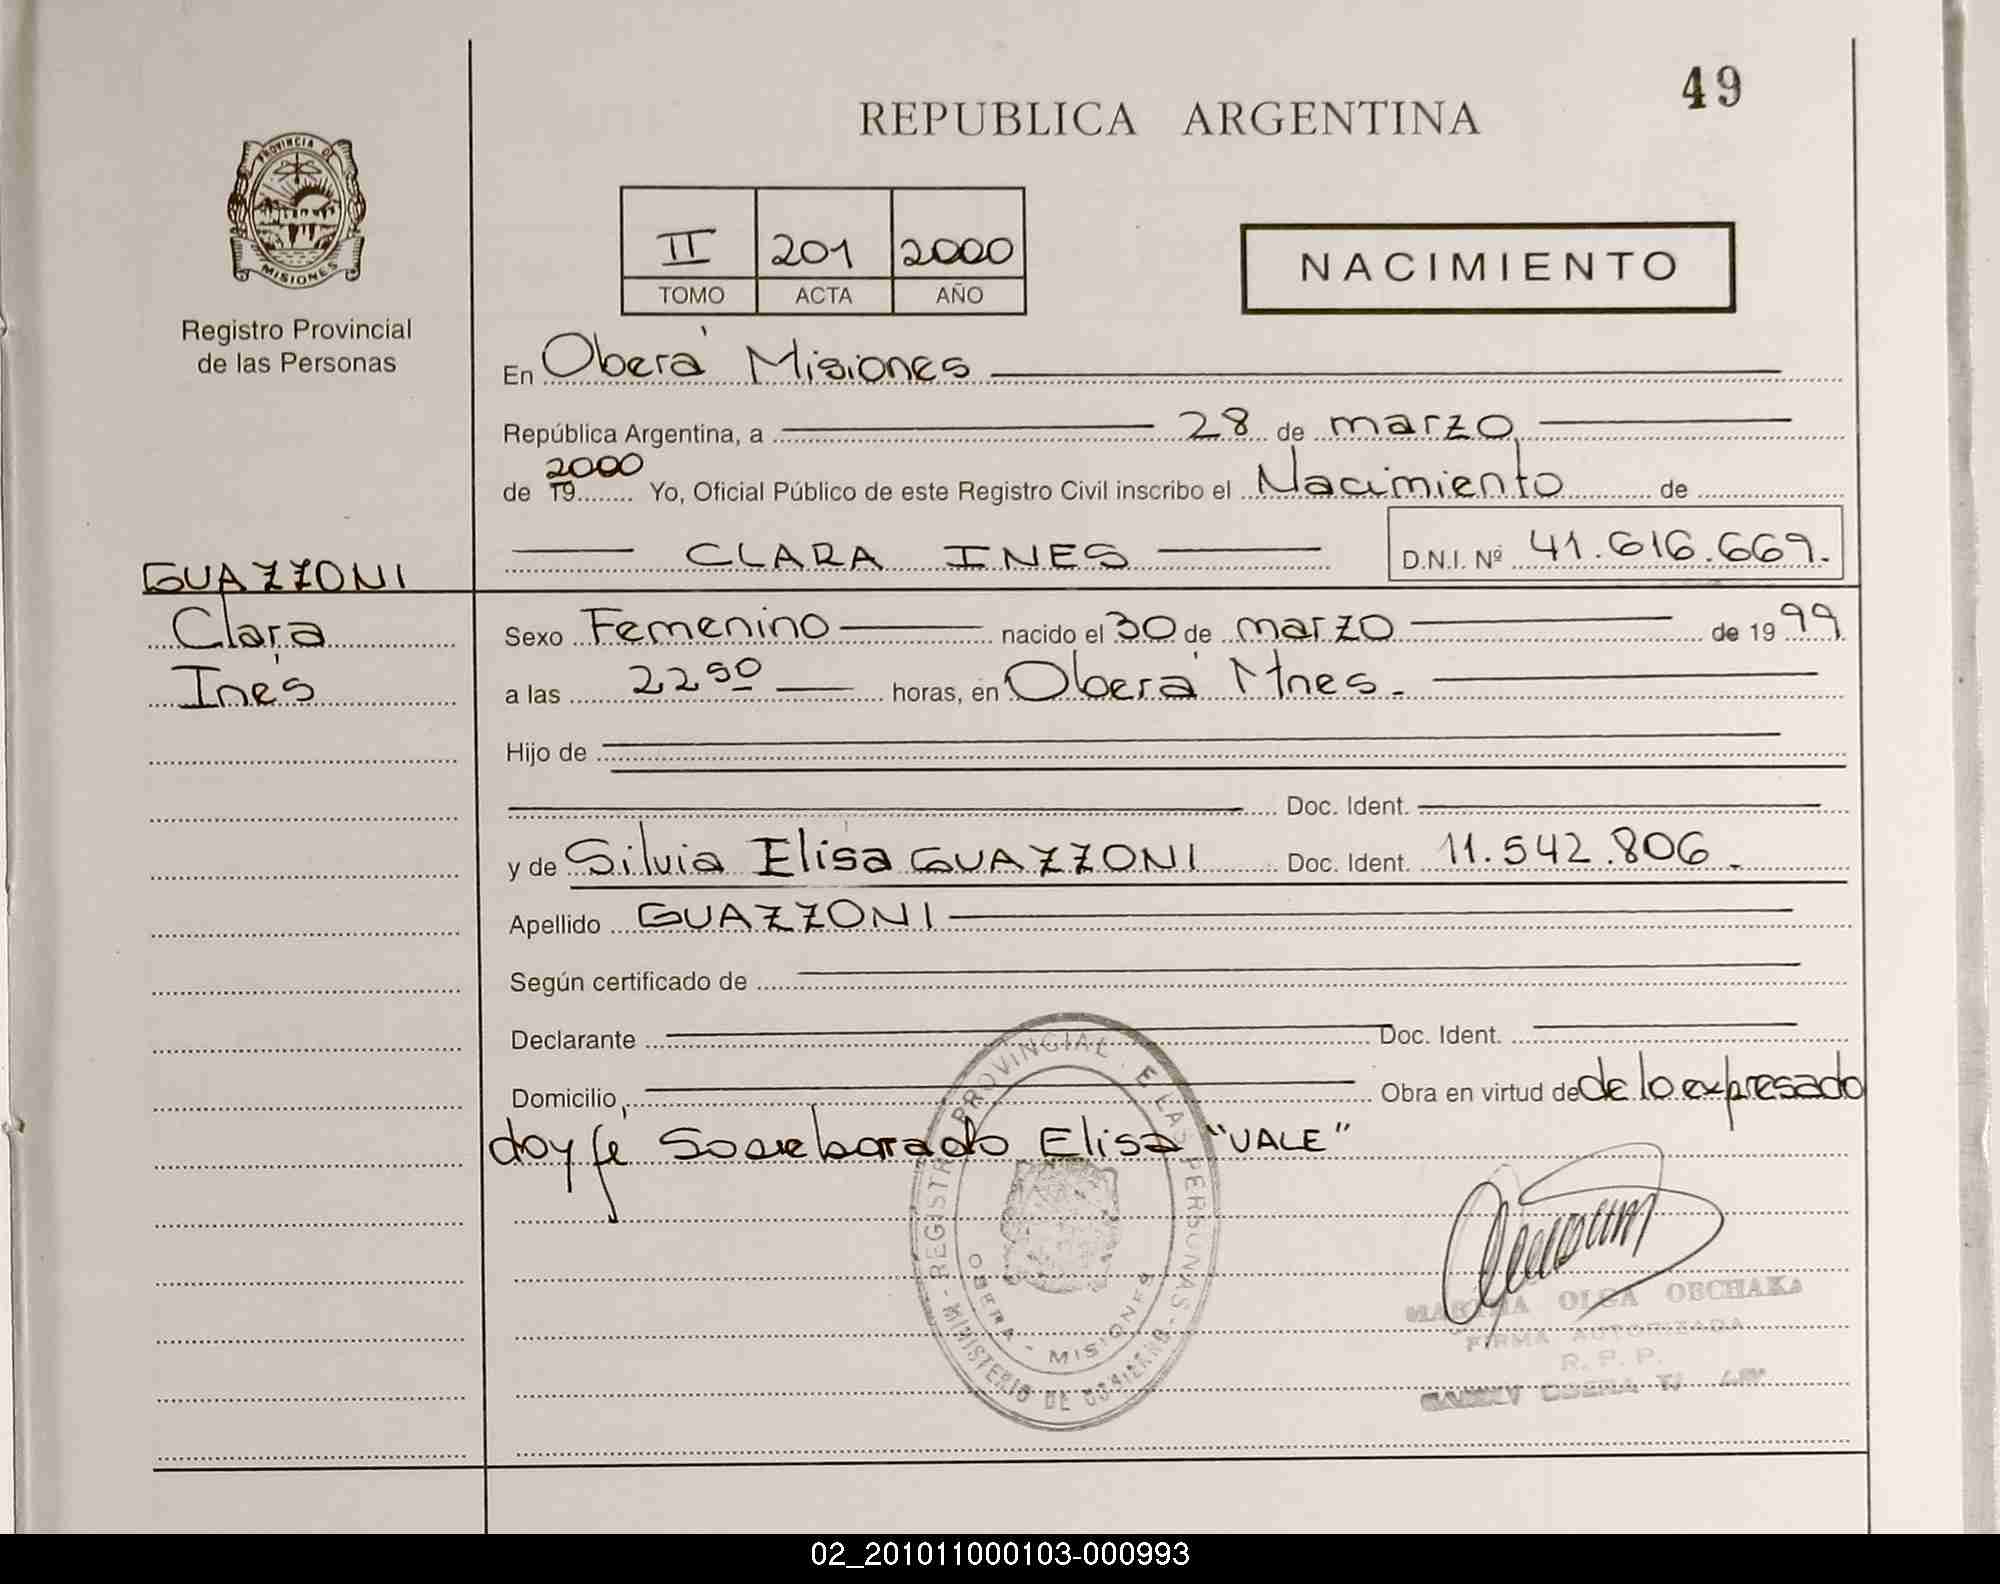 49
REPUBLICA ARGENTINA
PROVINCIA DE
MISIONES
Registro Provincial
de las Personas
II 201 2000
TOMO ACTA AÑO
NACIMIENTO
En Oberá Misiones
República Argentina, a 28 de marzo
2000
de 19 Yo, Oficial Público de este Registro Civil inscribo el Nacimiento de
CLARA INES D.N.I. Nº 41.616.669.
GUAZZONI
Clara
Inés
Sexo Femenino nacido el 30 de marzo de 19 99
a las 22 50 horas, en Oberá Mnes.
Hijo de
Doc. Ident.
y de Silvia Elisa GUAZZONI Doc. Ident. 11.542.806.
Apellido GUAZZONI
Según certificado de
Declarante Doc. Ident.
Domicilio Obra en virtud de de lo expresado
doy fé Elisa "VALE"
REGISTRO PROVINCIAL E LAS PERSONAS - MINISTERIO DE GOBIERNO -
OBERA - MISIONES
MARTHA OLGA OBCHAKA
FIRMA AUTORIZADA
R. P. P.
OBERA
02_201011000103-000993